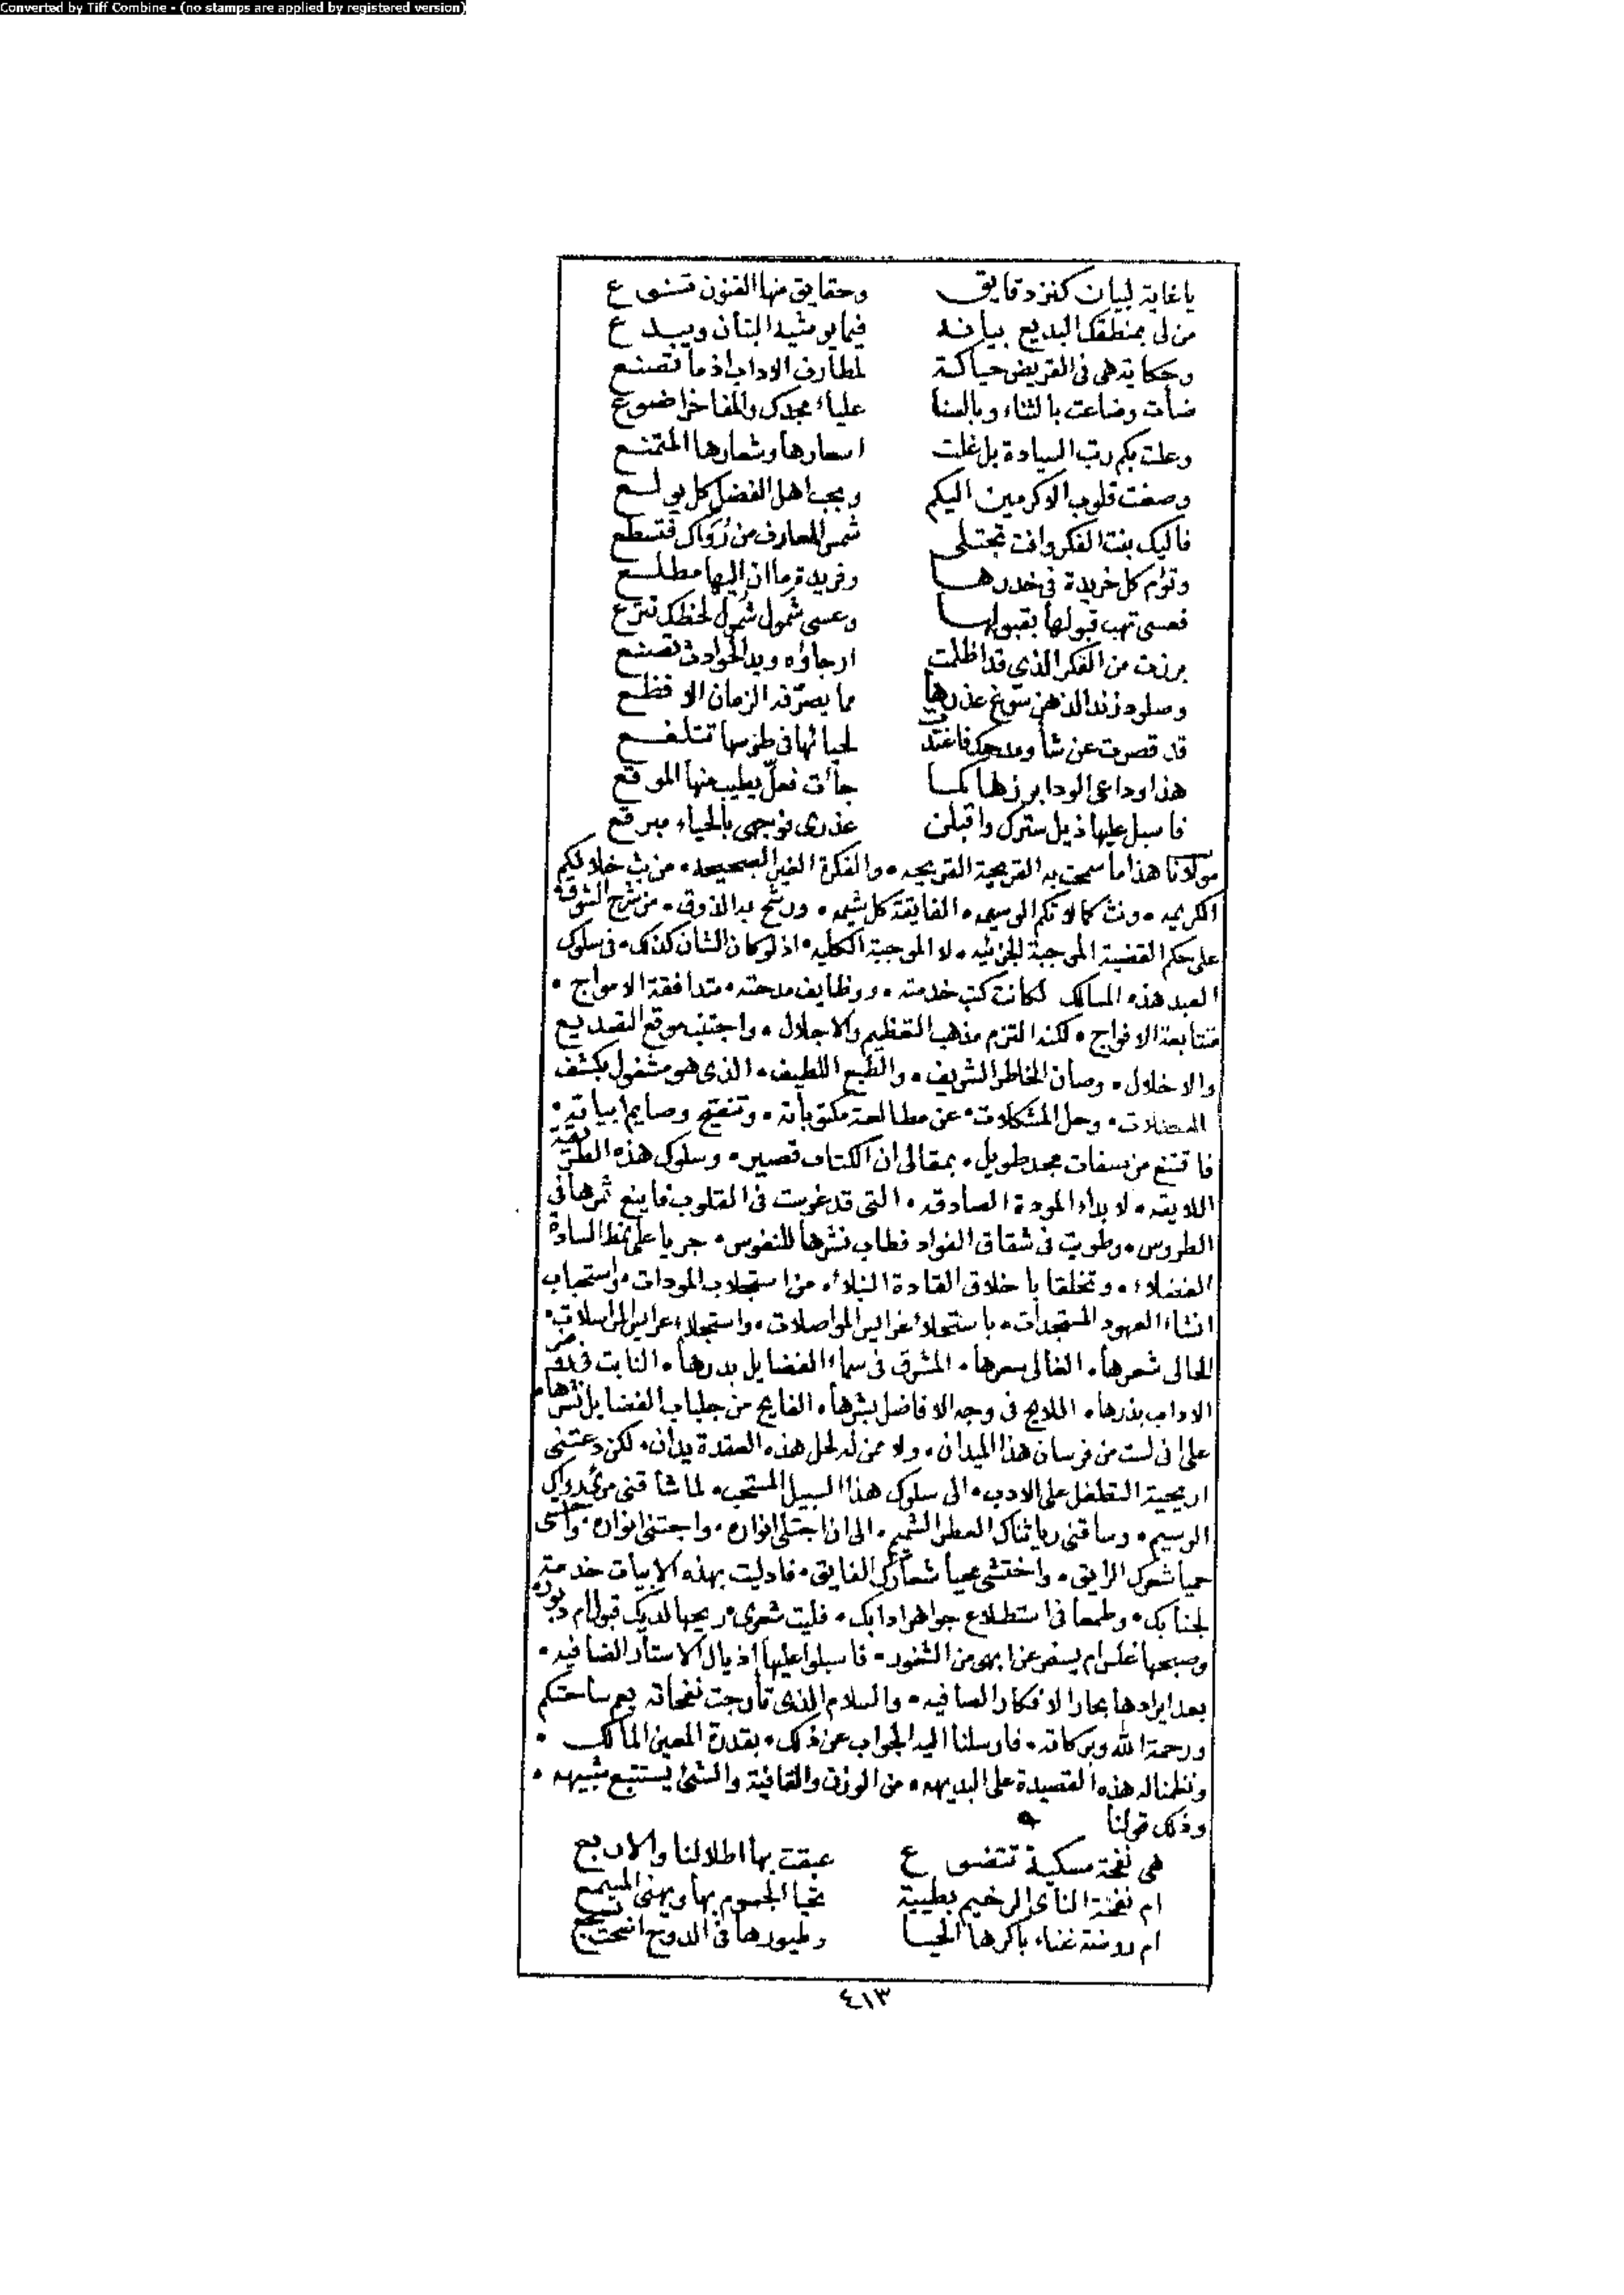 Converted by Tiff Combine - (no stamps are applied by registered version)
ياغاية لبيان كنز دقايق وحقايق منها الفنون تتنوع
من لى بمنطقك البديع بيانه فيما يوشيه البنان ويبدع
وحكاية هى فى القريض حياكة لمطارف الاداب اذ ما تصنع
ضأت وضاعت بالثناء وبالسنا علياء مجدك والمفاخر اضوع
وعلت بكم رتب السيادة بل غلت اسعارها وشعارها المتمنع
وصغت قلوب الاكرمين اليكم وبحب اهل الفضل كل يولع
فاليك بنت الفكر وافت تجتلى شمس المعارف من رؤاك فتسطع
وتؤم كل خريدة فى خدرها وفريدة ما ان اليها مطلع
فعسى تهب قبولها بقبولها وعسى شمول شمول لحظك تترع
برزت من الفكر الذى قد اظلمت ارجاؤه ويد الحوادث تصنع
وصلود زند الذهن سوغ عذرها مما يصرفه الزمان الافظع
قد قصرت عن شأو مدحك فاغتدت لحيائها فى طرسها تتلفع
هذا وداعى الود ابرزها كما جأت فعل يطيب منها الموقع
فاسبل عليها ذيل سترك واقبلن عذرى فوجهى بالحياء مبرقع
مولانا هذا ما سمحت به القريحة القريحه • والفكرة الغير الصحيحه • من بث خلالكم
الكريمه • ونث كمالاتكم الوسيمه • الفايقة كل شيمه • ورشح به الذوق • من شرح الشوق
على حكم القضية الموجبة الجزئيه • لا الموجبة الكليه • اذ لو كان الشان كذلك • فى سلوك
العبد هذه المسالك لكانت كتب خدمته • ووظايف مدحته • متدافقة الامواج •
متتابعة الافواج • لكنه التزم مذهب التعظيم والاجلال • واجتنب موقع التصديع
والاخلال • وصان الخاطر الشريف • والطبع اللطيف • الذى هو مشغول بكشف
المعضلات • وحل المشكلات • عن مطالعة مكتوباته • وتنقيح وصايم ابياته •
فاقتنع من صفات مجد طويل • بمقالى ان الكتاب قصير • وسلوك هذه الطريقة
اللايقه • لابداء المودة الصادقه • التى قد غرست فى القلوب فاينع ثمرها فى
الطروس • وطويت فى شقاق الفواد فطاب نشرها للنفوس • جريا على نمط السادة
الفضلاء • وتخلقا باخلاق القادة النبلاء • من استجلاب المودات • واستحباب
انشاء العهود المستجدات • باستحلاء غرايس المواصلات • واستجلاء عرايس المراسلات •
الحالى شعرها • الغالى سعرها • المشرق فى سماء الفضايل بدرها • النابت فى
الاداب بذرها • اللايح فى وجه الافاضل بشرها • الفايح من جلباب الفضايل نشرها •
على انى لست من فرسان هذا الميدان • ولا ممن له لحل هذه العقدة يدان • لكن دعتنى
اريحية التطفل على الادب • الى سلوك هذا السبيل المستحب • لما شاقنى مرئ رواك
الوسيم • وساقنى ريا ثناك العطر الشميم • الى ان اجتلى انواره • واجتنى انواره • واحتسى
حميا شعرك الرايق • واختشى محيا شعارك الفايق • فادليت بهذه الابيات خدمة
لجنابك • وطمعا فى استطلاع جواهر ادابك • فليت شعرى • ريحها لديك قبول ام دبور
وصبحها غلس ام يسفر عن ابهى من الثغور • فاسبلوا عليها اذيال الاستار الضافيه •
بعد ايرادها بحار الافكار الصافيه • والسلام الذى تأرجت نفحاته يعم ساحتكم
ورحمة الله وبركاته • فارسلنا اليه الجواب عن ذلك • بقدرة المعين المالك •
ونظمنا له هذه القصيدة على البديهه • من الوزن والقافية والشئ يستتبع شبيهه •
وذلك قولنا
هى نفحة مسكية تتضوع عبقت بها اطلالنا والاربع
ام نغمة الناى الرخيم بطيبة تحيا الجسوم بها ويهنى المسمع
ام روضة غناء باكرها الحيا وطيورها فى الدوح اضحت تسجع
٤١٣